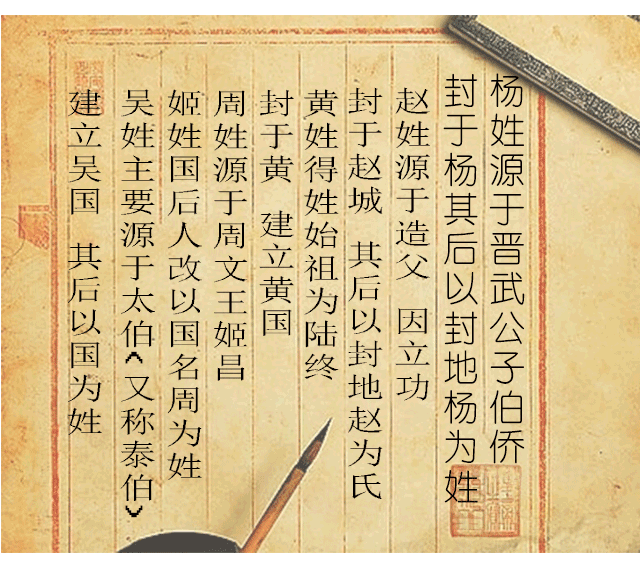 杨姓源于晋武公子伯侨
封于杨其后以封地杨为姓
赵姓源于造父 因立功
封于赵城 其后以封地赵为氏
黄姓得姓始祖为陆终
封于黄 建立黄国
周姓源于周文王姬昌
姬姓国后人改以国名周为姓
吴姓主要源于太伯(又称泰伯)
建立吴国 其后以国为姓